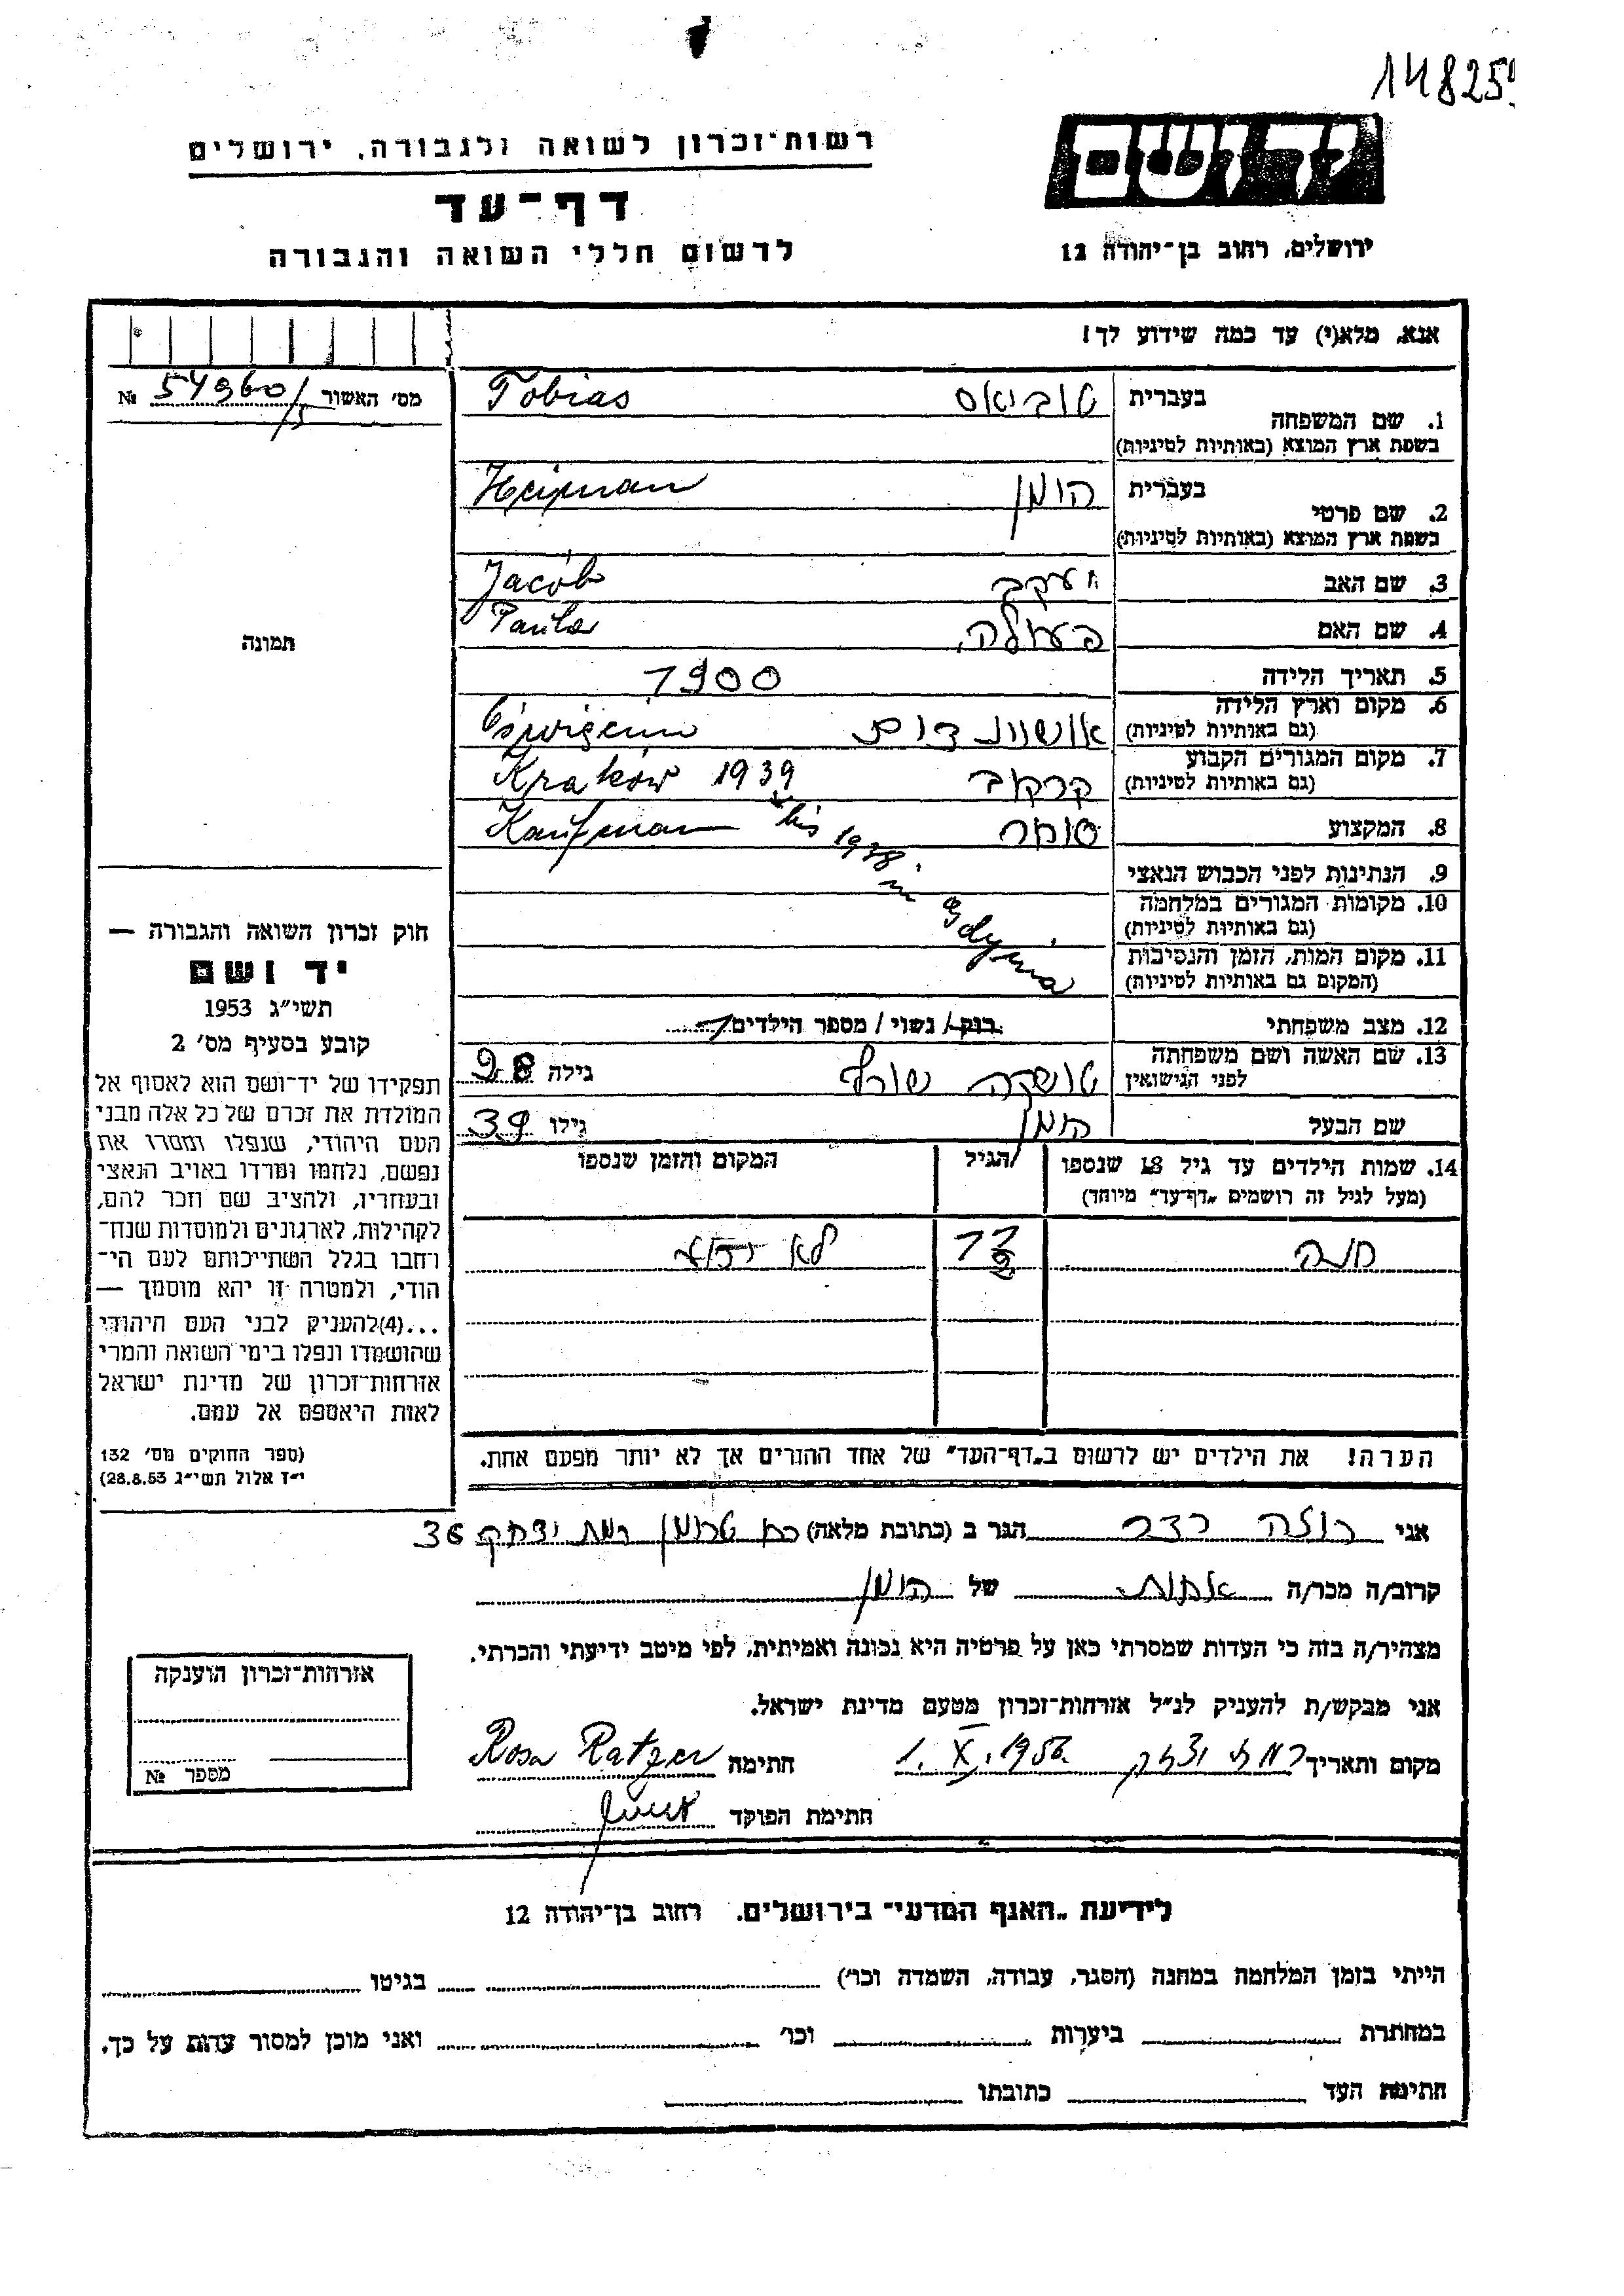 14825
יד ושם
רשות־זכרון לשואה ולגבורה, ירושלים
דף־עד
לרשום חללי השואה והגבורה
ירושלים, רחוב בן־יהודה 12
אנא, מלא(י) עד כמה שידוע לך!
מס' האשור 54960/5 №
1. שם המשפחה בעברית טוביאס Tobias
בשפת ארץ המוצא (באותיות לטיניות)
2. שם פרטי בעברית הומן Heiman
בשפת ארץ המוצא (באותיות לטיניות)
3. שם האב יעקב Jacób
4. שם האם פאולה Paula
5. תאריך הלידה 1900
6. מקום וארץ הלידה
(גם באותיות לטיניות)
7. מקום המגורים הקבוע קרקוב Kraków 1939
(גם באותיות לטיניות)
8. המקצוע סוחר Kaufman bis 1938 in Gdynia
9. הנתינות לפני הכבוש הנאצי
10. מקומות המגורים במלחמה
(גם באותיות לטיניות)
11. מקום המות, הזמן והנסיבות
(המקום גם באותיות לטיניות)
12. מצב משפחתי רוק/נשוי/מספר הילדים 1
13. שם האשה ושם משפחתה
לפני הנישואין
גילה 28
שם הבעל הומן גילו 39
14. שמות הילדים עד גיל 18 שנספו הגיל המקום והזמן שנספו
(מעל לגיל זה רושמים „דף־עד" מיוחד)
חנה לא ידוע
הערה! את הילדים יש לרשום ב„דף־העד" של אחד ההורים אך לא יותר מפעם אחת.
תמונה
חוק זכרון השואה והגבורה —
יד ושם
תשי"ג 1953
קובע בסעיף מס' 2
תפקידו של יד־ושם הוא לאסוף אל
המולדת את זכרם של כל אלה מבני
העם היהודי, שנפלו ומסרו את
נפשם, נלחמו ומרדו באויב הנאצי
ובעוזריו, ולהציב שם וזכר להם,
לקהילות, לארגונים ולמוסדות שנח־
רבו בגלל השתייכותם לעם הי־
הודי, ולמטרה זו יהא מוסמך —
...(4)להעניק לבני העם היהודי
שהושמדו ונפלו בימי השואה והמרי
אזרחות־זכרון של מדינת ישראל
לאות היאספם אל עמם.
(ספר החוקים מס' 132
י"ז אלול תשי"ג 28.8.53)
אני רוזה רצר הגר ב (כתובת מלאה) טרומן רמת יצחק 36
קרוב/ה מכר/ה אחות של הומן
מצהיר/ה בזה כי העדות שמסרתי כאן על פרטיה היא נכונה ואמיתית, לפי מיטב ידיעתי והכרתי.
אני מבקש/ת להעניק לנ"ל אזרחות־זכרון מטעם מדינת ישראל.
מקום ותאריך רמת יצחק 1. X. 1956 חתימה Rosa Ratzer
חתימת הפוקד
אזרחות־זכרון הוענקה
מספר №
לידיעת „האגף המדעי" בירושלים, רחוב בן־יהודה 12
הייתי בזמן המלחמה במחנה (הסגר, עבודה, השמדה וכו') בגיטו
במחתרת ביערות וכו' ואני מוכן למסור עדות על כך.
חתימת העד כתובתו